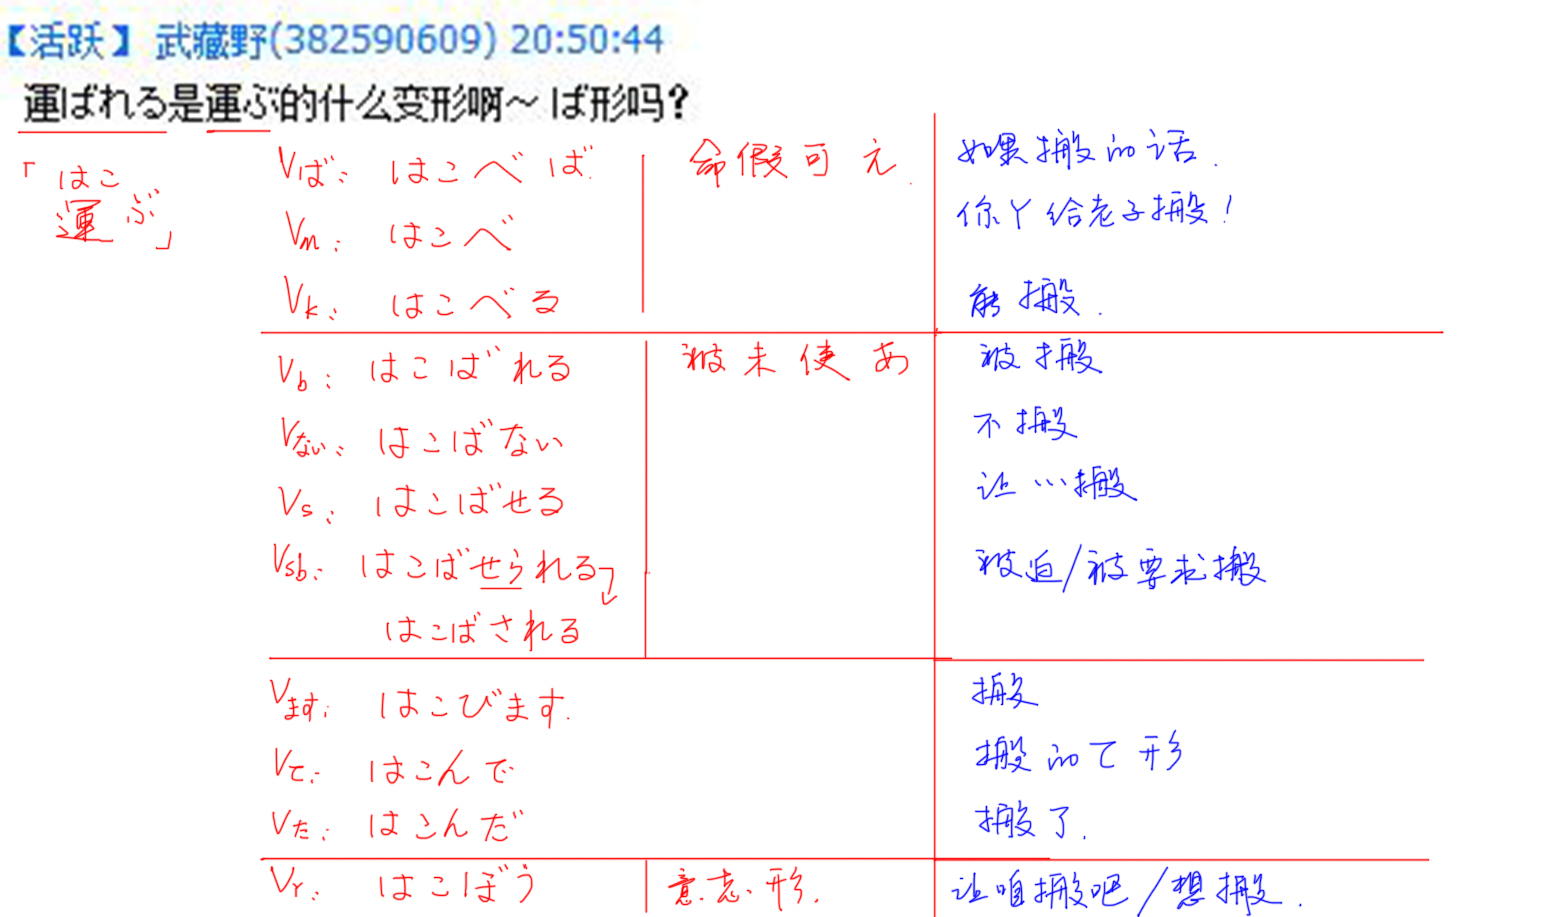 【活跃】 武藏野(382590609) 20:50:44
運ばれる是運ぶ的什么变形啊～ ば形吗?
「はこ
運ぶ」
Vば: はこべば. 命假可え. 如果搬的话.
Vm: はこべ 你丫给老子搬!
Vk: はこべる 能搬.
Vb: はこばれる 被未使あ 被搬
Vない: はこばない 不搬
Vs: はこばせる 让…搬
Vsb: はこばせられる 被迫/被要求搬
はこばされる
Vます: はこびます. 搬
Vて: はこんで 搬的て形
Vた: はこんだ 搬了.
Vr: はこぼう 意志形. 让咱搬吧/想搬.